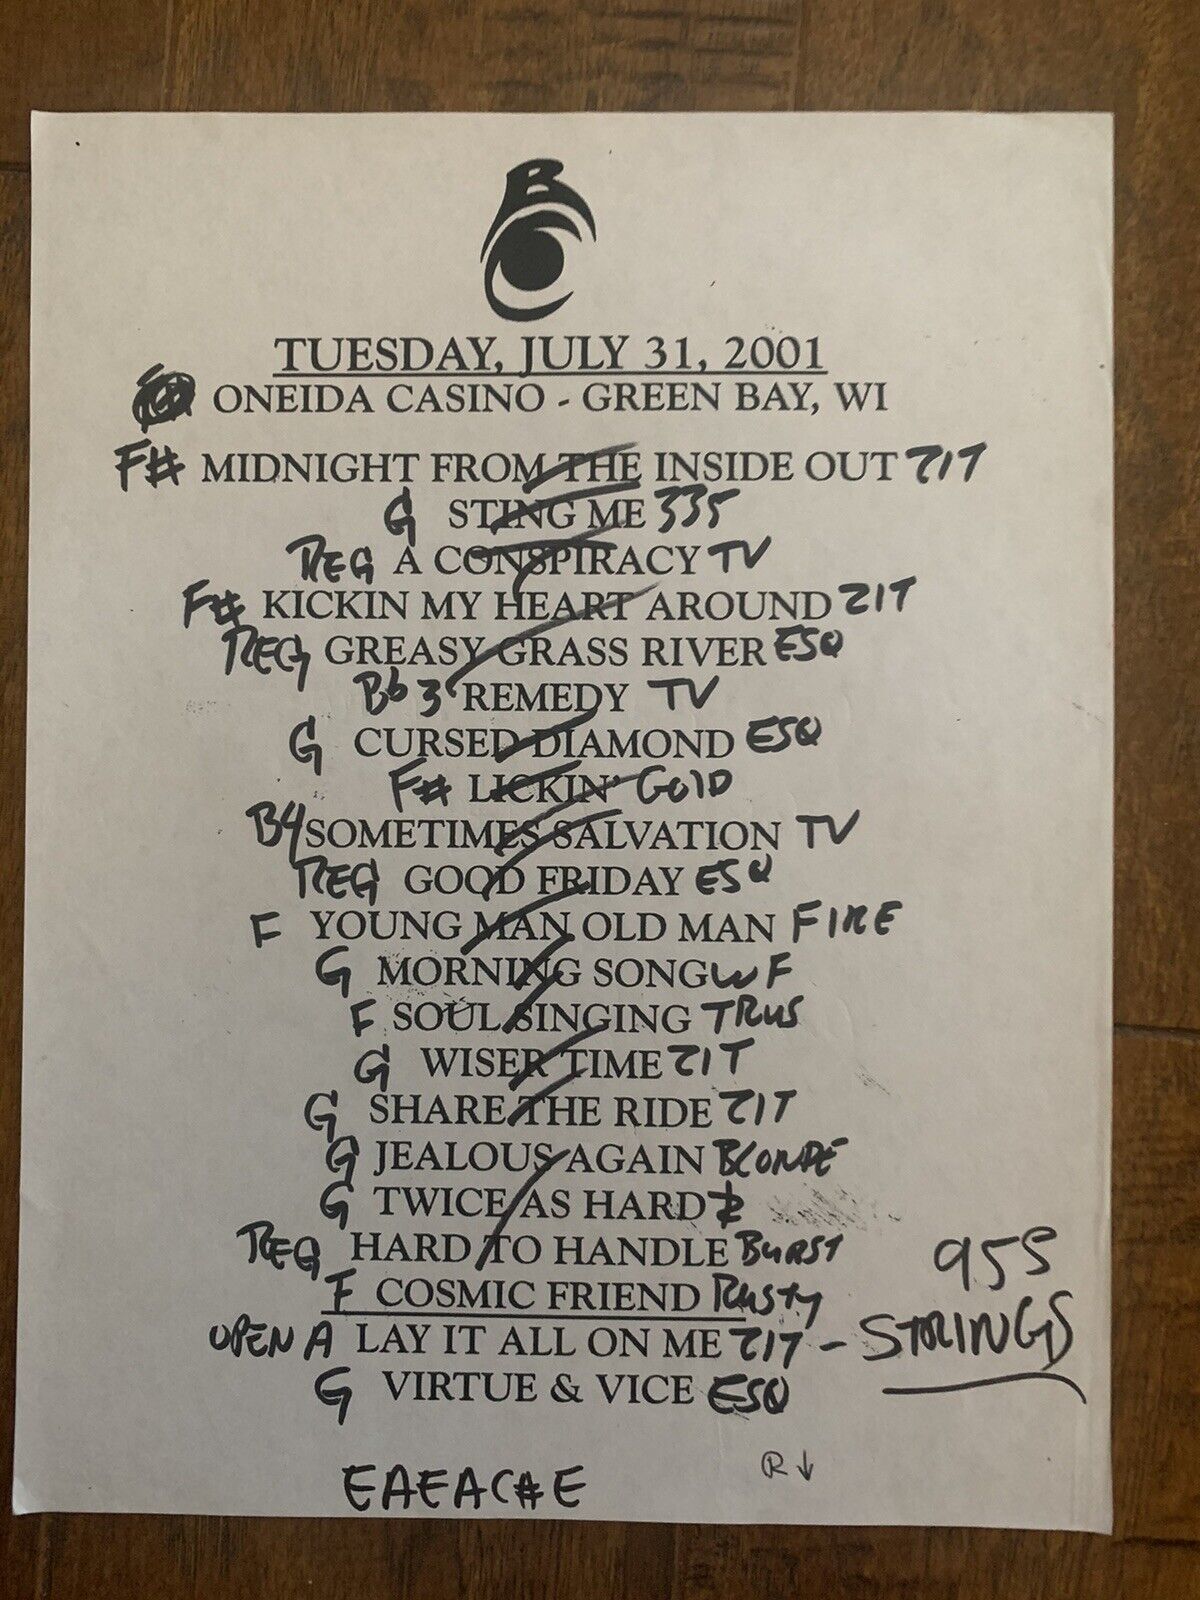 B
TUESDAY, JULY 31, 2001
ONEIDA CASINO - GREEN BAY, WI
F# MIDNIGHT FROM THE INSIDE OUT ZIT
G STING ME 335
REG A CONSPIRACY TV
F# KICKIN MY HEART AROUND ZIT
REG GREASY GRASS RIVER ESQ
Bb 3 REMEDY TV
G CURSED DIAMOND ESQ
F# LICKIN' GOLD
B4 SOMETIMES SALVATION TV
REG GOOD FRIDAY ESQ
F YOUNG MAN OLD MAN FIRE
G MORNING SONG WF
F SOUL SINGING TRUS
G WISER TIME ZIT
G SHARE THE RIDE ZIT
G JEALOUS AGAIN BLONDE
G TWICE AS HARD
REG HARD TO HANDLE BURST
F COSMIC FRIEND RUSTY
OPEN A LAY IT ALL ON ME ZIT - 955 STRINGS
G VIRTUE & VICE ESQ
EAEAC#E
R ↓